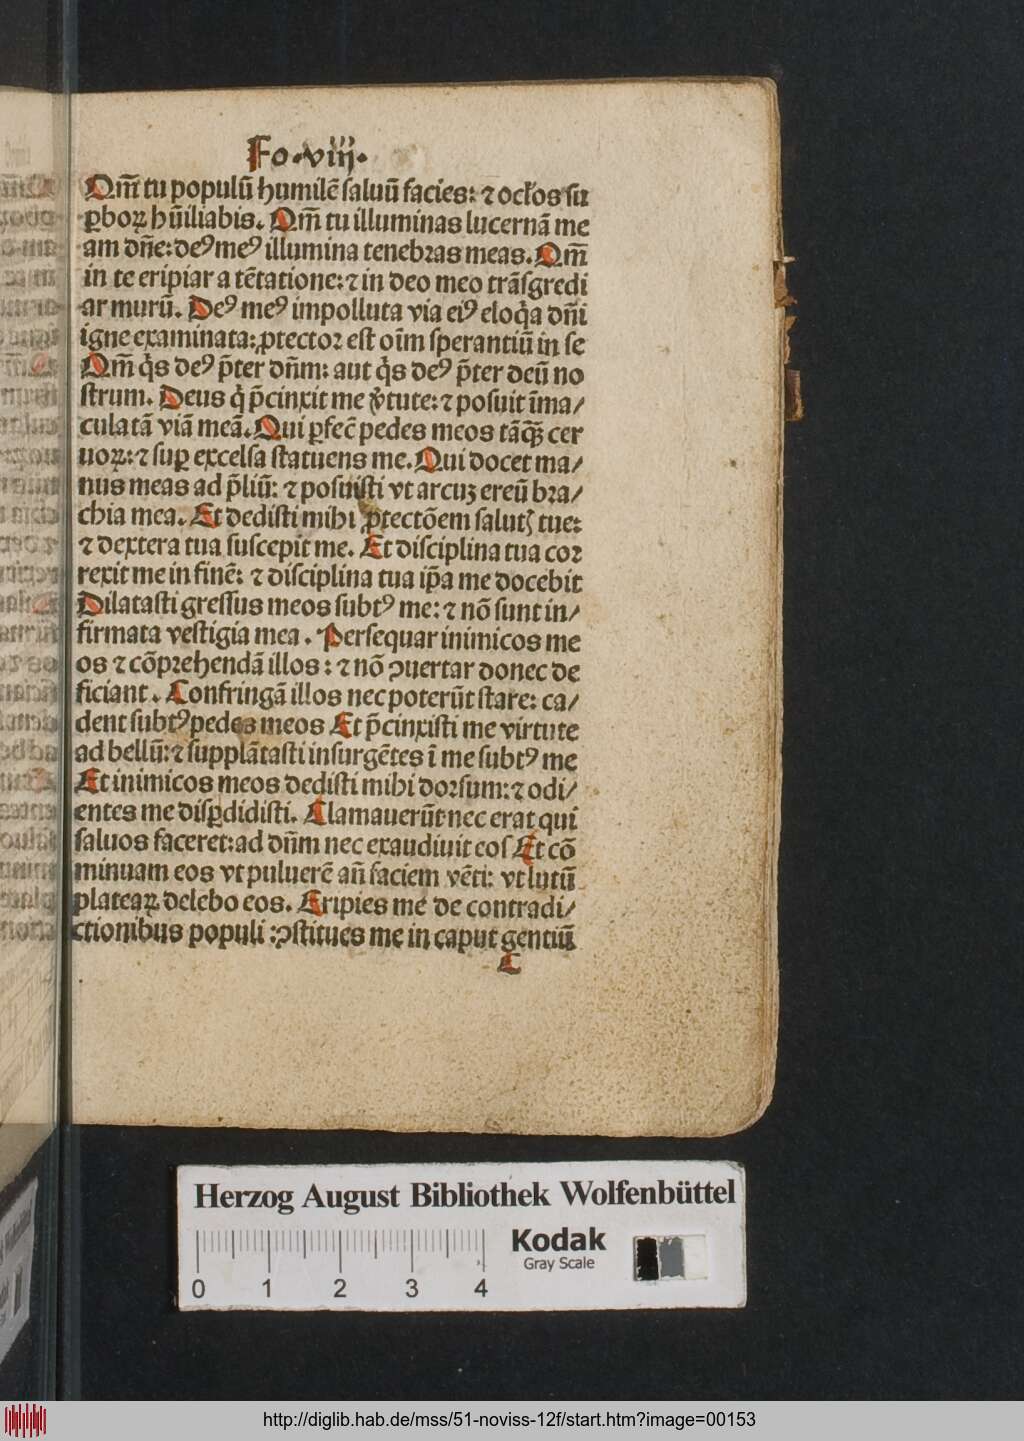 Fo.viij.
Qm̄ tu populū humilē saluū facies: ⁊ oc̄los su
ꝑboꝝ hūiliabis. Qm̄ tu illuminas lucernā me
am dn̄e: deꝰ meꝰ illumina tenebꝛas meas. Qm̄
in te eripiar a tētatione: ⁊ in deo meo trāsgredi
ar murū. Deꝰ meꝰ impolluta via eiꝰ eloq̄a dn̄i
igne examinata: ꝓtectoꝛ est oīm sperantiū in se
Qm̄ q̇s deꝰ p̄ter dn̄m: aut q̇s deꝰ p̄ter deū no
strum. Deus q̇ p̄cinxit me ꝟtute: ⁊ posuit īma/
culatā viā meā. Qui ꝑfec̄ pedes meos tāꝙ̄ cer
uoꝝ: ⁊ suꝑ excelsa statuens me. Qui docet ma/
nus meas ad p̄liū: ⁊ posuisti vt arcuꝫ ereū bꝛa/
chia mea. Et dedisti mihi ꝓtectōem salutꝭ tue:
⁊ dextera tua suscepit me. Et disciplina tua coꝛ
rexit me in finē: ⁊ disciplina tua ip̄a me docebit
Dilatasti gressus meos subtꝰ me: ⁊ nō sunt in/
firmata vestigia mea. Persequar inimicos me
os ⁊ cōpꝛehendā illos: ⁊ nō ꝯuertar donec de
ficiant. Confringā illos nec poterūt stare: ca/
dent subtꝰ pedes meos Et p̄cinxisti me virtute
ad bellū: ⁊ supplātasti insurgētes ī me subtꝰ me
Et inimicos meos dedisti mihi doꝛsum: ⁊ odi/
entes me disꝑdidisti. Clamauerūt nec erat qui
saluos faceret: ad dn̄m nec exaudiuit eos Et cō
minuam eos vt puluerē an̄ faciem vēti: vt lutū
plateaꝝ delebo eos. Eripies me de contradi/
ctionibus populi: ꝯstitues me in caput gentiū
C
Herzog August Bibliothek Wolfenbüttel
Kodak
Gray Scale
0 1 2 3 4
http://diglib.hab.de/mss/51-noviss-12f/start.htm?image=00153